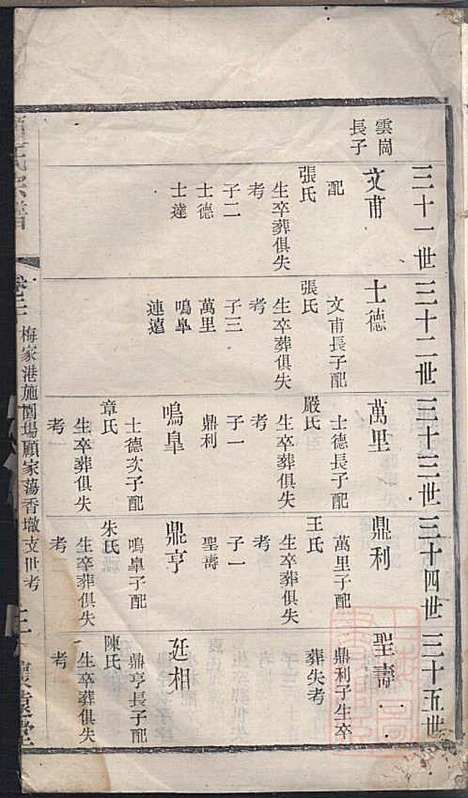 三十一世
雲崗長子
文甫
配
張氏
生卒葬俱失
考
子二
士德
士達
三十二世
士德
文甫長子配
張氏
生卒葬俱失
考
子三
萬里
鳴臯
連遠
三十三世
萬里
士德長子配
嚴氏
生卒葬俱失
考
子一
鼎利
鳴臯
士德次子配
章氏
生卒葬俱失
考
三十四世
鼎利
萬里子配
王氏
生卒葬俱失
考
子一
聖壽
鼎亨
鳴臯子配
朱氏
生卒葬俱失
考
三十五世
聖壽
鼎利子生卒
葬失考
廷相
鼎亨長子配
陳氏
生卒葬俱失
考
氏宗譜
卷三
梅家港施團場顧家蕩香墩支世考